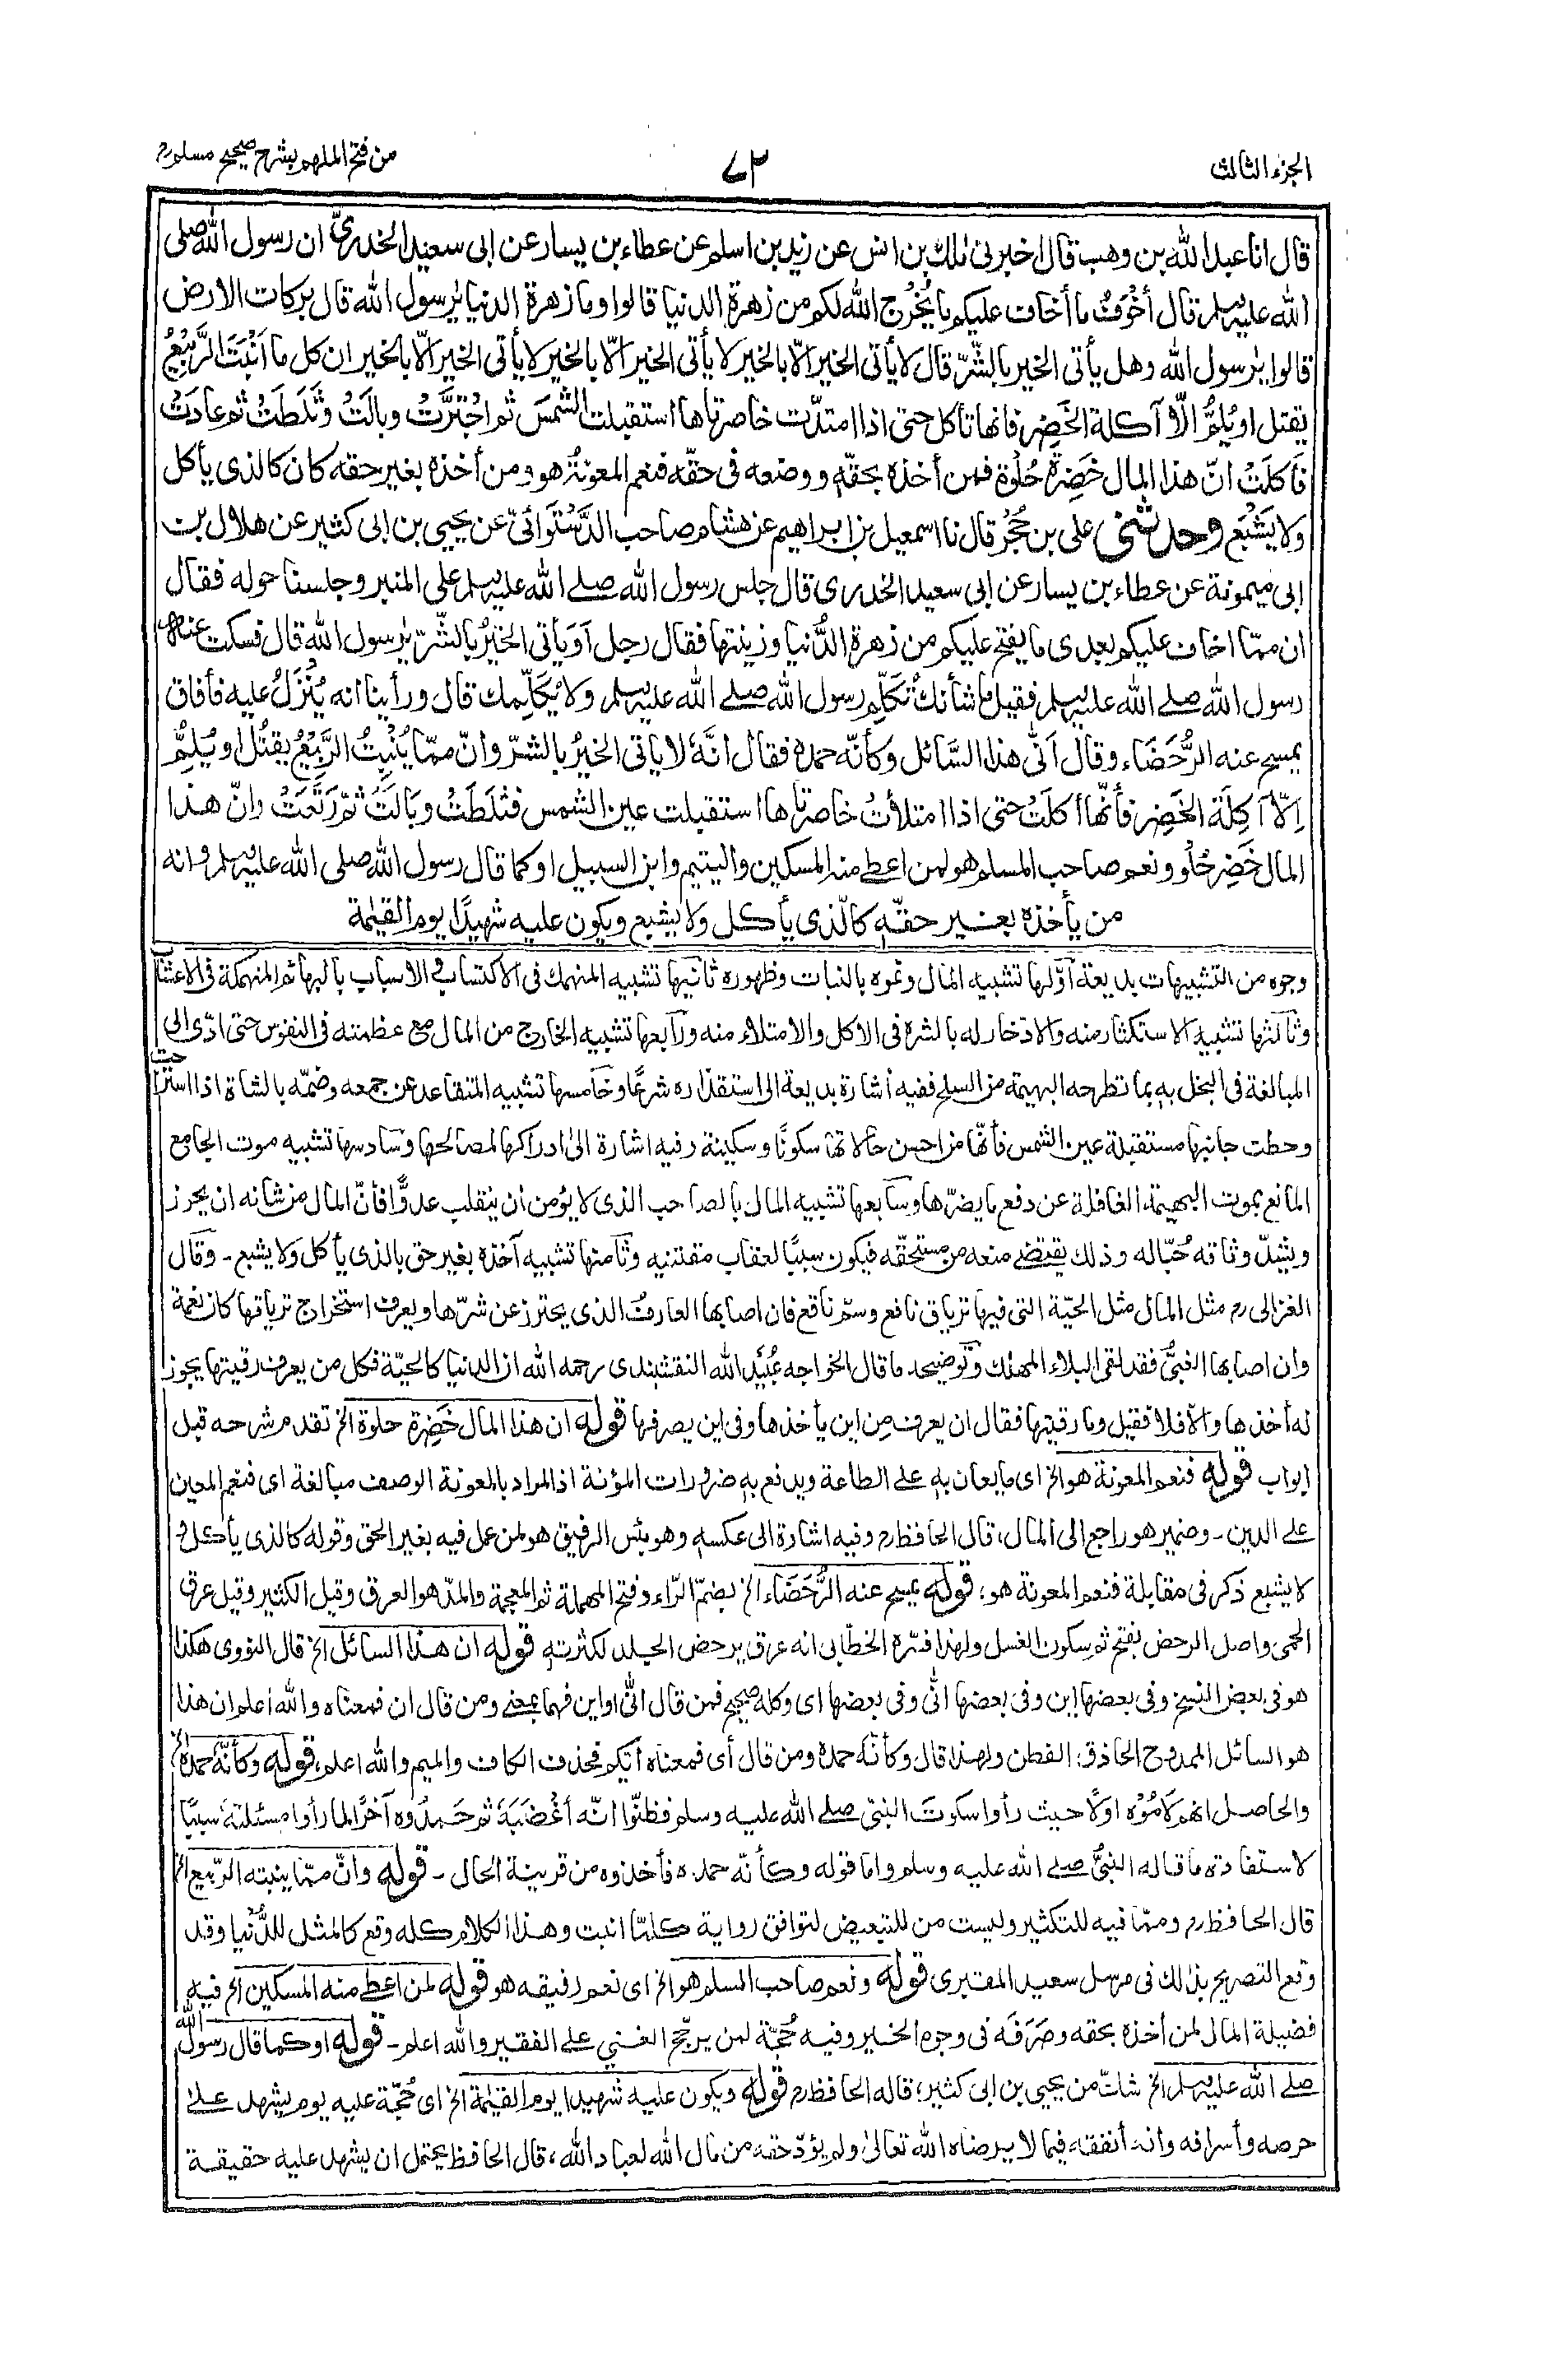 الجزء الثالث
٧٢
من فتح الملهم بشرح صحيح مسلم
قال انا عبد الله بن وهب قال اخبرنى مٰلك بن انس عن زيد بن اسلم عن عطاء بن يسار عن ابى سعيد الخدرىّ ان رسول الله صلى
الله عليه وسلم قال أخْوَفُ ما أخاف عليكم ما يُخْرُج الله لكم من زهرة الدنيا قالوا وما زهرة الدنيا يٰرسول الله قال بركات الارض
قالوا يٰرسول الله وهل يأتى الخير بالشّرّ قال لا يأتى الخير الّا بالخير لا يأتى الخير الّا بالخير لا يأتى الخير الّا بالخير ان كل ما اَنْبَتَ الرَّبِيْعُ
يقتل او يُلِمُّ الّا آكلة الخَضِر فانها تأكل حتى اذا امتدّت خاصرتاها استقبلت الشمسَ ثم اجْتَرَّتْ وبالَتْ وثَلَطَتْ ثم عادَتْ
فَاَكلَتْ انّ هذا المال خَضِرَةٌ حُلْوَة فمن أخذه بحقّهٖ ووضعه فى حقّه فنعم المعونةُ هو ومن أخذه بغير حقه كان كالذى يأكل
ولا يَشْبَع وحدثنى على بن حُجْر قال نا اسمعيل بن ابراهيم عن هشام صاحب الدَّسْتَوَائىّ عن يحيى بن ابى كثير عن هلال بن
ابى ميمونة عن عطاء بن يسار عن ابى سعيد الخدرى قال جلس رسول الله صلے الله عليه وسلم على المنبر وجلسنا حوله فقال
ان ممّا اخاف عليكم بعدى ما يفتح عليكم من زهرة الدُّنيا وزينتها فقال رجل اَوَيأتى الخَيْرُ بالشّرّ يٰرسول الله قال فسكت عنه
رسول الله صلے الله عليه وسلم فقيل ما شأنك تُكَلِّم رسول الله صلے الله عليه وسلم ولا يُكَلِّمك قال ورأينا انه يُنْزَلُ عليه فأفاق
يمسح عنه الرُّحَضَاء وقال اَنّٰى هذا السَّائل وكأنّه حمده فقال انّهٗ لا يأتى الخيرُ بالشرّ وانّ ممّا يُنْبِتُ الرَّبِيْعُ يقتُل او يُلِمُّ
اِلّا آكِلَة الخَضِر فأنّها أكلَتْ حتى اذا امتلأتْ خاصرتاها استقبلت عين الشمس فثلَطَتْ وبَالَتْ ثمّ رَتَعَتْ وانّ هذا
المال خَضِر حُلْو ونعم صاحب المسلم هو لمن اعطے منه المسكين واليتيم وابن السبيل او كما قال رسول الله صلى الله عليه وسلم وانه
من يأخذه بغير حقّهٖ كالّذى يأكل ولا يشبع ويكون عليه شهيدًا يوم القيٰمة
وجوه من التشبيهات بديعة أوّلها تشبيه المال ونموه بالنبات وظهوره ثانيها تشبيه المنهمك فى الاكتساب والاسباب بالبهائم المنهمكة فى الاعشاب
وثالثها تشبيه الاستكثار منه والادخار له بالشره فى الاكل والامتلاء منه ورابعها تشبيه الخارج من المال مع عظمته فى النفوس حتى ادّى الى
المبالغة فى البخل بهٖ بما تطرحه البهيمة من السلح ففيه أشارة بديعة الى استقذاره شرعًا وخامسها تشبيه المتقاعد عن جمعه وضمّه بالشاة اذا استراحت
وحطت جانبها مستقبلة عين الشمس فأنّها من احسن حالاتها سكونًا وسكينة وفيه اشارة الى ادراكها لمصالحها وسادسها تشبيه موت الجامع
المانع بموت البهيمة الغافلة عن دفع ما يضرّها وسابعها تشبيه المال بالصاحب الذى لا يؤمن أن ينقلب عدوًّا فأنّ المال من شانه ان يحرز
ويشدّ وثاقه حُبّا له وذلك يقتضے منعه من مستحقّه فيكون سببًا لعقاب مقتنيه وثامنها تشبيه آخذه بغير حق بالذى يأكل ولا يشبع ـ وقال
الغزالى رم مثل المال مثل الحيّة التى فيها ترياق نافع وسمّ ناقع فان اصابها العارف الذى يحترز عن شرّها ويعرف استخراج ترياقها كان نعمة
وان اصابها الغبىُّ فقد لقى البلاء المهلك وتوضيحه ما قال الخواجه عُبَيْد الله النقشبندى رحمه الله ان الدنيا كالحيّة فكل من يعرف رقيتها يجوز
له أخذها والّا فلا فقيل وما رقيتها فقال ان يعرف مِن اين يأخذها وفى اين يصرفها قولهٖ ان هذا المال خَضِرة حلوة الخ تقدم شرحه قبل
ابواب قولهٖ فنعم المعونة هو الخ اى ما يعان بهٖ علے الطاعة ويدفع بهٖ ضرورات المؤنة اذ المراد بالمعونة الوصف مبالغة اى فنعم المعين
علے الدين ـ وضمير هو راجع الى المال، قال الحافظ رم وفيه اشارة الى عكسهٖ وهو بئس الرفيق هو لمن عمل فيه بغير الحق وقوله كالذى يأكل و
لا يشبع ذكر فى مقابلة فنعم المعونة هو؛ قولهٖ يمسح عنه الرُّحَضَاء الخ بضمّ الرّاء وفتح المهملة ثم المعجمة والمدّ هو العرق وقيل الكثير وقيل عرق
الحمى واصل الرحض بفتح ثم سكون الغسل ولهذا فسّره الخطّابى انه عرق يرحض الجلد لكثرتهٖ قولهٖ ان هذا السائل الخ قال النووى هكذا
هو فى بعض النسخ وفى بعضها اين وفى بعضها انّٰى وفى بعضها اى وكله صحيح فمن قال انّٰى او اين فهما بمعنے ومن قال ان فمعناه والله أعلم ان هذا
هو السائل الممدوح الحاذق الفطن ولهذا قال وكأنّه حمده ومن قال أى فمعناه أيّكم فحذف الكاف والميم والله اعلم، قولهٖ وكأنّهٗ حمده الخ
والحاصل انهم لَامُوْه اوّلًا حيث رأوا سكوتَ النبىّ صلے الله عليه وسلم فظنّوا انّه أغْضَبَهٗ ثم حَمِدُوه آخرًا لما رأوا مسئلتهٗ سببًا
لاستفادة ما قاله النبىُّ صلے الله عليه وسلم واما قوله وكأنّه حمده فأخذوه من قرينة الحال ـ قولهٖ وانّ ممّا ينبته الرّبيع الخ
قال الحافظ رم وممّا فيه للتكثير وليست من للتبعيض لتوافق رواية كلّما انبت وهذا الكلام كله وقع كالمثل للدُّنيا وقد
وقع التصريح بذلك فى مرسل سعيد المقبرى قولهٖ ونعم صاحب المسلم هو الخ اى نعم رفيقه هو قولهٖ لمن اعطے منه المسكين الخ فيه
فضيلة المال لمن أخذه بحقه وصَرَفَه فى وجوه الخير وفيه حُجّة لمن يرجّح الغنى علے الفقير والله اعلم ـ قولهٖ او كما قال رسول الله
صلے الله عليه وسلم الخ شكّ من يحيى بن ابى كثير؛ قاله الحافظ رم قولهٖ ويكون عليه شهيدا يوم القيٰمة الخ اى حُجّة عليه يوم يشهد علےٰ
حرصه وأسرافه وانه أنفقه فيما لا يرضاه الله تعالىٰ ولم يؤدّ حقه من مال الله لعباد الله، قال الحافظ يحتمل ان يشهد عليه حقيقة